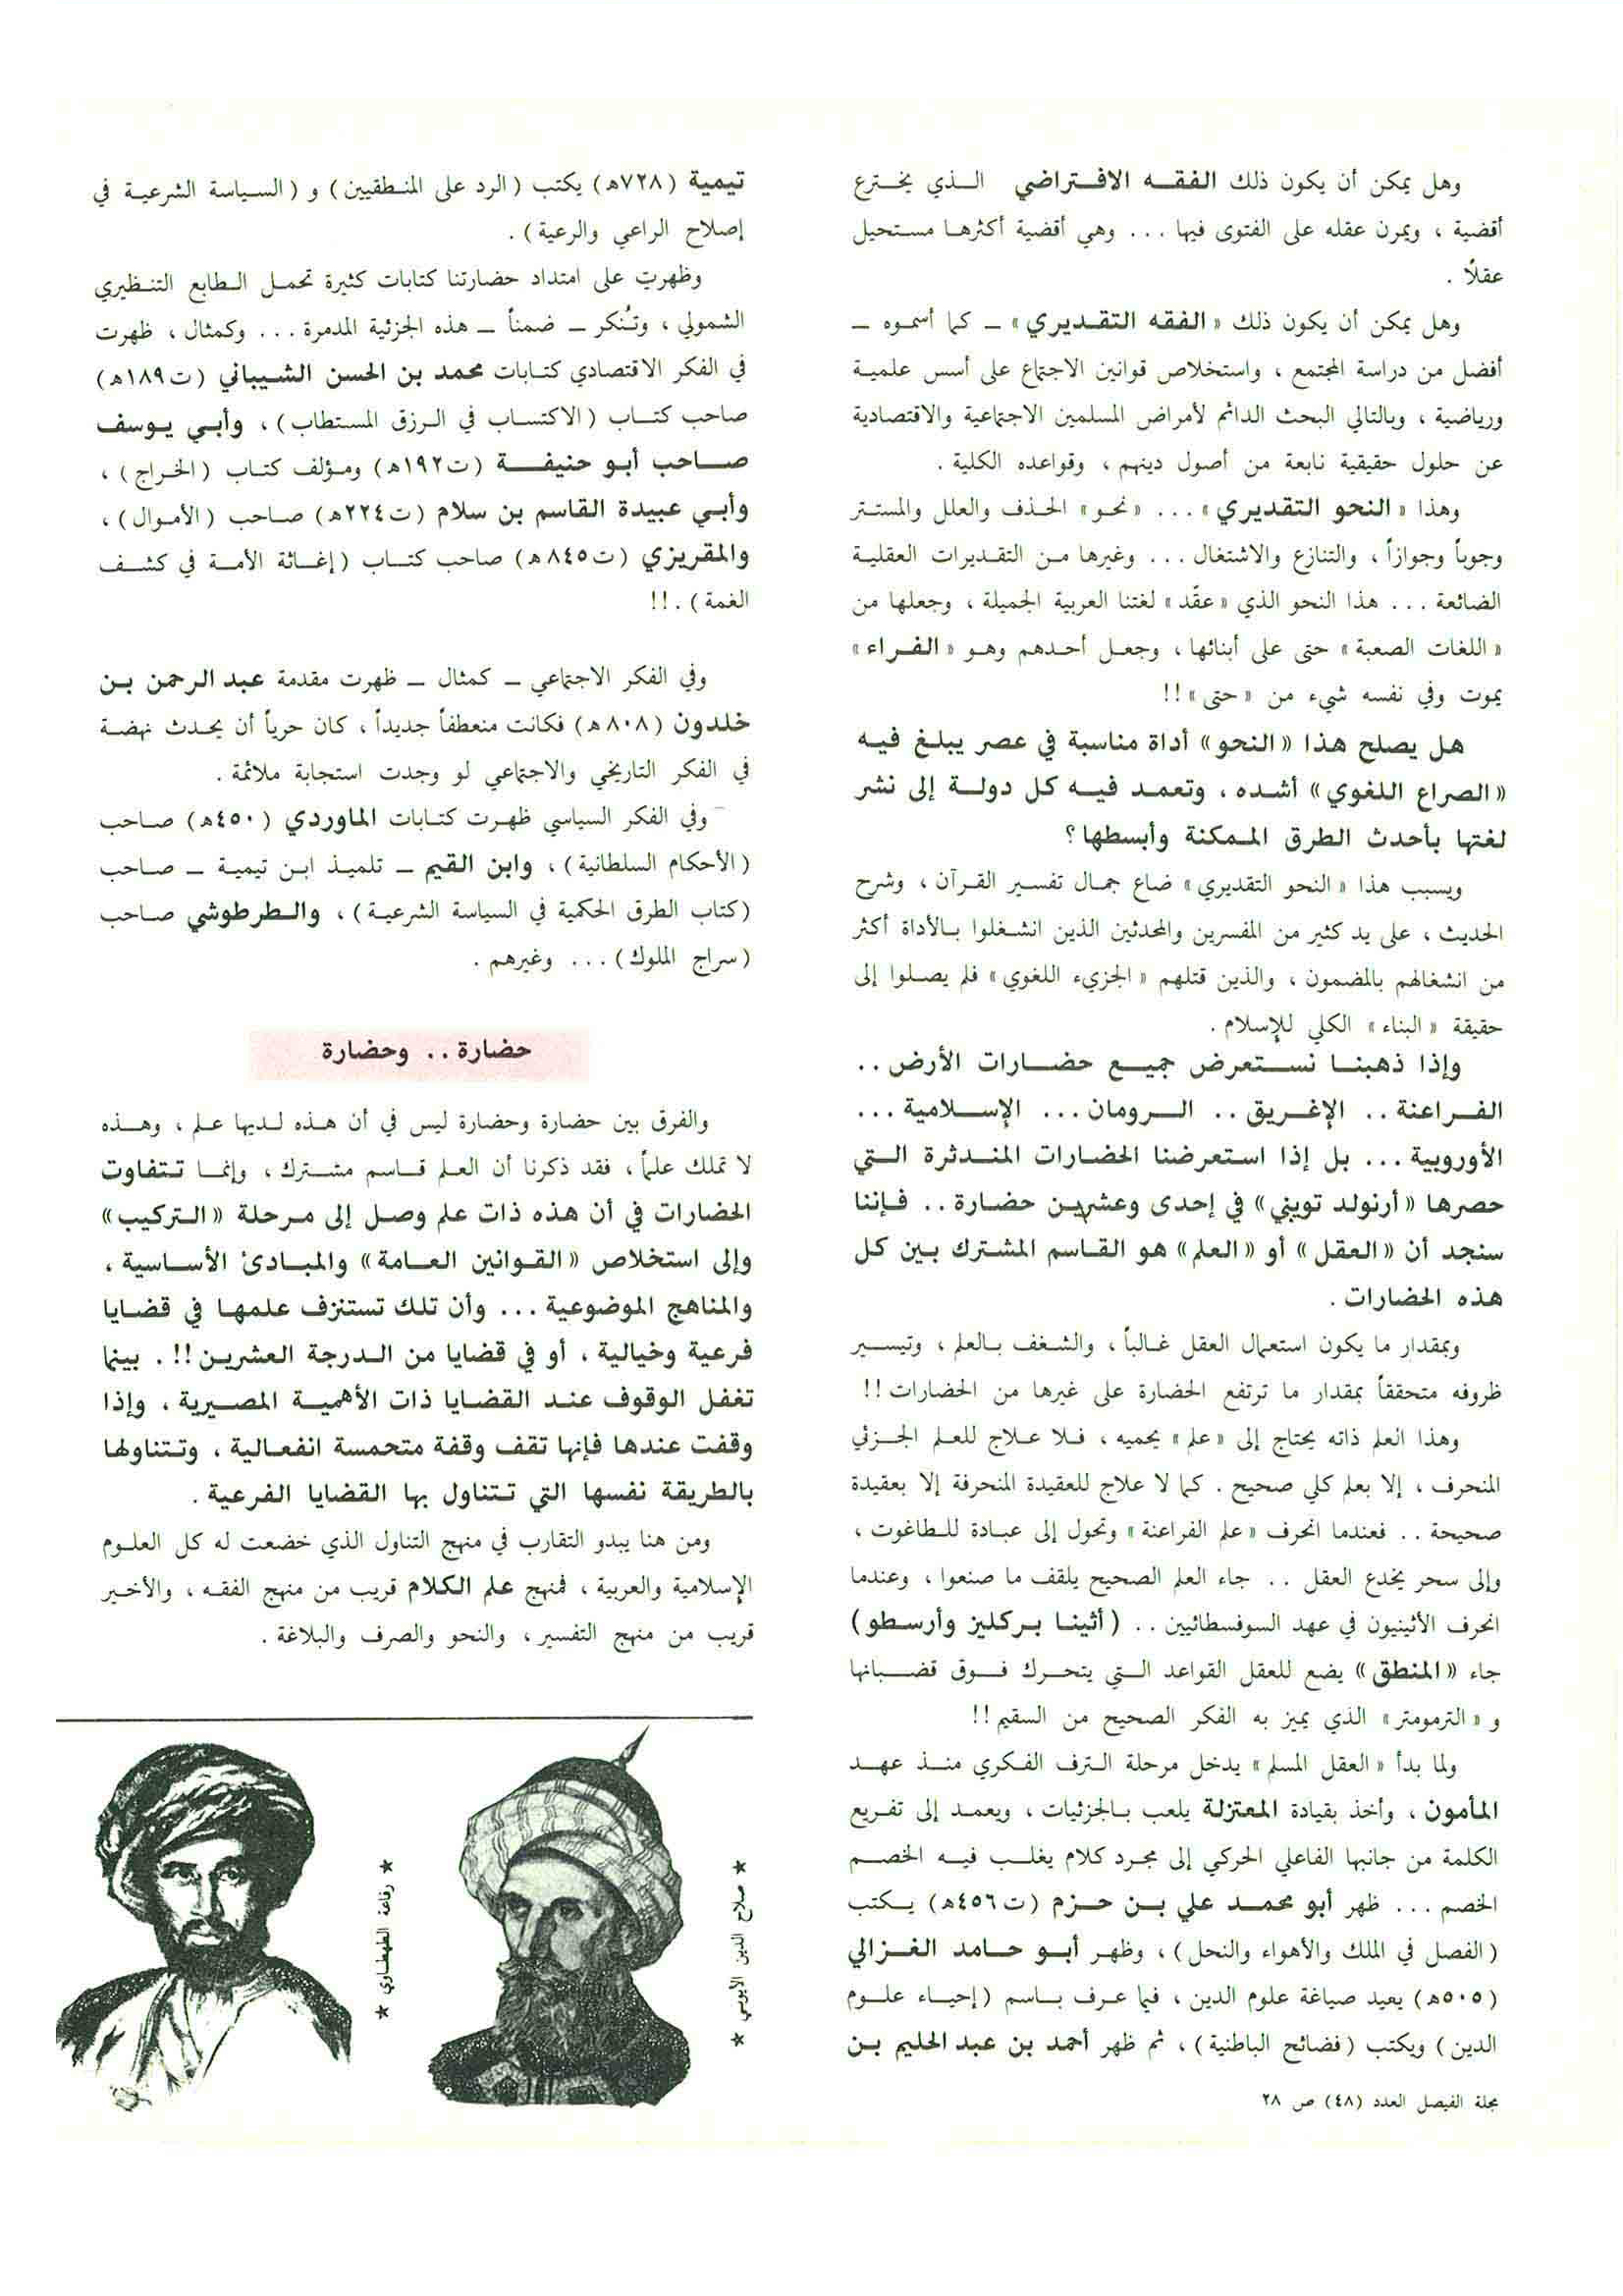 وهل يمكن أن يكون ذلك الفقه الافتراضي الذي يخترع
أقضية ، ويمرن عقله على الفتوى فيها ... وهي أقضية أكثرها مستحيل
عقلاً .
وهل يمكن أن يكون ذلك «الفقه التقديري» ـ كما أسموه ـ
أفضل من دراسة المجتمع ، واستخلاص قوانين الاجتماع على أسس علمية
ورياضية ، وبالتالي البحث الدائم لأمراض المسلمين الاجتماعية والاقتصادية
عن حلول حقيقية نابعة من أصول دينهم ، وقواعده الكلية .
وهذا «النحو التقديري» ... «نحو» الحذف والعلل والمستتر
وجوباً وجوازاً ، والتنازع والاشتغال ... وغيرها من التقديرات العقلية
الضائعة ... هذا النحو الذي «عقّد» لغتنا العربية الجميلة ، وجعلها من
«اللغات الصعبة» حتى على أبنائها ، وجعل أحدهم وهو «الفراء»
يموت وفي نفسه شيء من «حتى»!!
هل يصلح هذا «النحو» أداة مناسبة في عصر يبلغ فيه
«الصراع اللغوي» أشده ، وتعمد فيه كل دولة إلى نشر
لغتها بأحدث الطرق الممكنة وأبسطها؟
ويسبب هذا «النحو التقديري» ضاع جمال تفسير القرآن ، وشرح
الحديث ، على يد كثير من المفسرين والمحدثين الذين انشغلوا بالأداة أكثر
من انشغالهم بالمضمون ، والذين قتلهم «الجزيء اللغوي» فلم يصلوا إلى
حقيقة «البناء» الكلي للإسلام .
وإذا ذهبنا نستعرض جميع حضارات الأرض ..
الفراعنة .. الإغريق .. الرومان ... الإسلامية ...
الأوروبية ... بل إذا استعرضنا الحضارات المندثرة التي
حصرها «أرنولد تويني» في إحدى وعشرين حضارة .. فإننا
سنجد أن «العقل» أو «العلم» هو القاسم المشترك بين كل
هذه الحضارات .
وبمقدار ما يكون استعمال العقل غالباً ، والشغف بالعلم ، وتيسير
ظروفه متحققاً بمقدار ما ترتفع الحضارة على غيرها من الحضارات!!
وهذا العلم ذاته يحتاج إلى «علم» يحميه ، فلا علاج للعلم الجزئي
المنحرف ، إلا بعلم كلي صحيح . كما لا علاج للعقيدة المنحرفة إلا بعقيدة
صحيحة .. فعندما انحرف «علم الفراعنة» وتحول إلى عبادة للطاغوت ،
وإلى سحر يخدع العقل .. جاء العلم الصحيح يلقف ما صنعوا ، وعندما
انحرف الأثينيون في عهد السوفسطائيين .. (أثينا بركليز وأرسطو)
جاء «المنطق» يضع للعقل القواعد التي يتحرك فوق قضبانها
و «الترمومتر» الذي يميز به الفكر الصحيح من السقيم!!
ولما بدأ «العقل المسلم» يدخل مرحلة الترف الفكري منذ عهد
المأمون ، وأخذ بقيادة المعتزلة يلعب بالجزئيات ، ويعمد إلى تفريع
الكلمة من جانبها الفاعلي الحركي إلى مجرد كلام يغلب فيه الخصم
الخصم ... ظهر أبو محمد علي بن حزم (ت٤٥٦هـ) يكتب
(الفصل في الملك والأهواء والنحل) ، وظهر أبو حامد الغزالي
(٥٠٥هـ) يعيد صياغة علوم الدين ، فيما عرف باسم (إحياء علوم
الدين) ويكتب (فضائح الباطنية) ، ثم ظهر أحمد بن عبد الحليم بن
مجلة الفيصل العدد (٤٨) ص ٢٨
تيمية (٧٢٨هـ) يكتب (الرد على المنطقيين) و (السياسة الشرعية في
إصلاح الراعي والرعية) .
وظهرت على امتداد حضارتنا كتابات كثيرة تحمل الطابع التنظيري
الشمولي ، وتُنكر ـ ضمناً ـ هذه الجزئية المدمرة ... وكمثال ، ظهرت
في الفكر الاقتصادي كتابات محمد بن الحسن الشيباني (ت١٨٩هـ)
صاحب كتاب (الاكتساب في الرزق المستطاب) ، وأبي يوسف
صاحب أبو حنيفة (ت١٩٢هـ) ومؤلف كتاب (الخراج) ،
وأبي عبيدة القاسم بن سلام (ت٢٢٤هـ) صاحب (الأموال) ،
والمقريزي (ت٨٤٥هـ) صاحب كتاب (إغاثة الأمة في كشف
الغمة) .!!
وفي الفكر الاجتماعي ـ كمثال ـ ظهرت مقدمة عبد الرحمن بن
خلدون (٨٠٨هـ) فكانت منعطفاً جديداً ، كان حرياً أن يحدث نهضة
في الفكر التاريخي والاجتماعي لو وجدت استجابة ملائمة .
وفي الفكر السياسي ظهرت كتابات الماوردي (٤٥٠هـ) صاحب
(الأحكام السلطانية) ، وابن القيم ـ تلميذ ابن تيمية ـ صاحب
(كتاب الطرق الحكمية في السياسة الشرعية) ، والطرطوشي صاحب
(سراج الملوك) ... وغيرهم .
حضارة .. وحضارة
والفرق بين حضارة وحضارة ليس في أن هذه لديها علم ، وهذه
لا تملك علماً ، فقد ذكرنا أن العلم قاسم مشترك ، وإنما تتفاوت
الحضارات في أن هذه ذات علم وصل إلى مرحلة «التركيب»
وإلى استخلاص «القوانين العامة» والمبادئ الأساسية ،
والمناهج الموضوعية ... وأن تلك تستنزف علمها في قضايا
فرعية وخيالية ، أو في قضايا من الدرجة العشرين!! . بينما
تغفل الوقوف عند القضايا ذات الأهمية المصيرية ، وإذا
وقفت عندها فإنها تقف وقفة متحمسة انفعالية ، وتتناولها
بالطريقة نفسها التي تتناول بها القضايا الفرعية .
ومن هنا يبدو التقارب في منهج التناول الذي خضعت له كل العلوم
الإسلامية والعربية ، فمنهج علم الكلام قريب من منهج الفقه ، والأخير
قريب من منهج التفسير ، والنحو والصرف والبلاغة .
★ صلاح الدين الأيوبي ★
★ رفاعة الطهطاوي ★